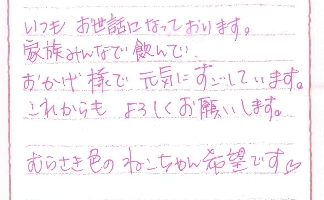 いつも お世話になっております。
家族みんなで 飲んで、
おかげ様で 元気にすごしています。
これからも よろしくお願いします。
むらさき色の ねこちゃん希望です♡